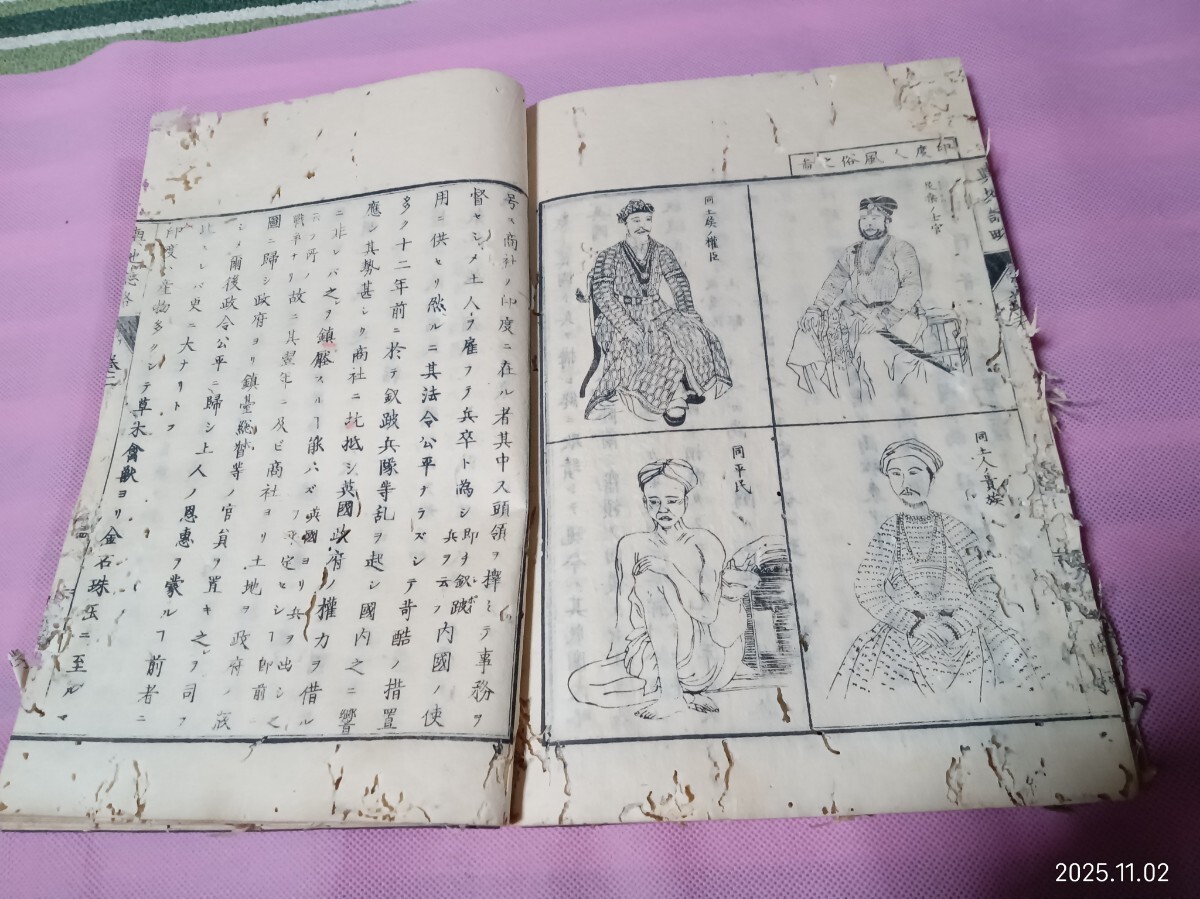 印度人風俗之圖
輿地誌略
兵隊ノ士官
同土侯ノ權臣
同土人ノ貴族
同平民
号ス商社ノ印度ニ在ル者其中ヨリ頭領ヲ擇ミテ事務ヲ
督セシメ土人ヲ雇フテ兵卒ト為シ即チ叙跛兵ヲ云フ内國ノ使
用ニ供セリ然ルニ其法令公平ナラズシテ苛酷ノ措置
多ク十二年前ニ於テ叙跛兵隊等乱ヲ起シ國内之ニ響
應シ其勢甚シク商社ニ抵抗シ英國政府ノ權力ヲ借ル
ニ非レバ之ヲ鎮壓スルヿ能ハズ英國ヨリ兵ヲ出シ之
戰争ナリ故ニ其翌年ニ及ビ商社ヨリ土地ヲ政府ノ版
圖ニ歸シ政府ヨリ鎮臺総督等ノ官員ヲ置キ之ヲ司ラ
シメ爾後政令公平ニ歸シ土人ノ恩惠ヲ蒙ルヿ前者ニ
比シ更ニ大ナリトフ
印度ノ産物多クシテ草木禽獣ヨリ金石珠玉ニ至ルマ
輿地誌略
卷二